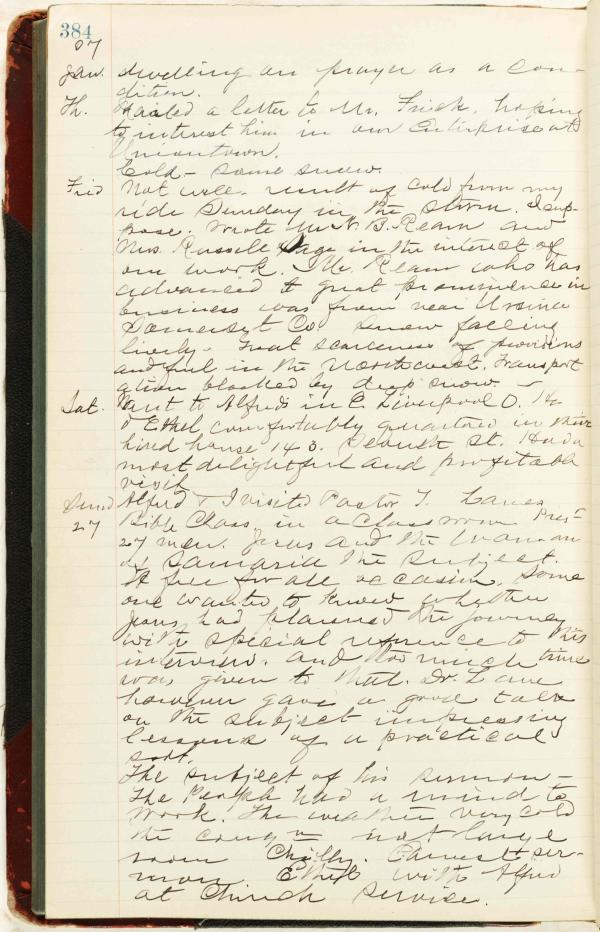 384
07
Jan. dwelling on prayer as a con-
dition.
Th. Mailed a letter to Mr. Frick, hoping
to interest him in our Enterprise at
Uniontown.
Cold - some snow.
Frid Not well - result of cold from my
ride Sunday in the storm. I sup-
pose. Wrote Mr N. B. Ream and
Mrs. Russell Sage in the interest of
our work. Mr. Ream who has
advanced to great prominence in
business was from near Ursina
Somerset Co. Snow falling
lively - Great scarceness of provisions
and fuel in the Northwest. Transport
ation blocked by deep snow. -
Sat. Went to Alfred's in E. Liverpool O. He
& Ethel comfortably quartered in their
hired house 143. Seventh St. Had a
most delightful and profitable
visit
Sund Alfred & I visited Pastor T. Lanes
27 Bible Class in a class room Pres-
27 men. Jesus and the Woman
of Samaria the subject.
A free for all occasion. Some
one wanted to know whether
Jesus had planned the journey
with special reference to this
interview. and too much time
was given to that. Dr. Lane
however gave a good talk
on the subject impressing
lessons of a practical
sort.
The subject of his sermon -
The People had a mind to
work. The weather very cold
the cong'n not large
room Chilly. Earnest ser-
mon Ethel with Alfred
at Church service.